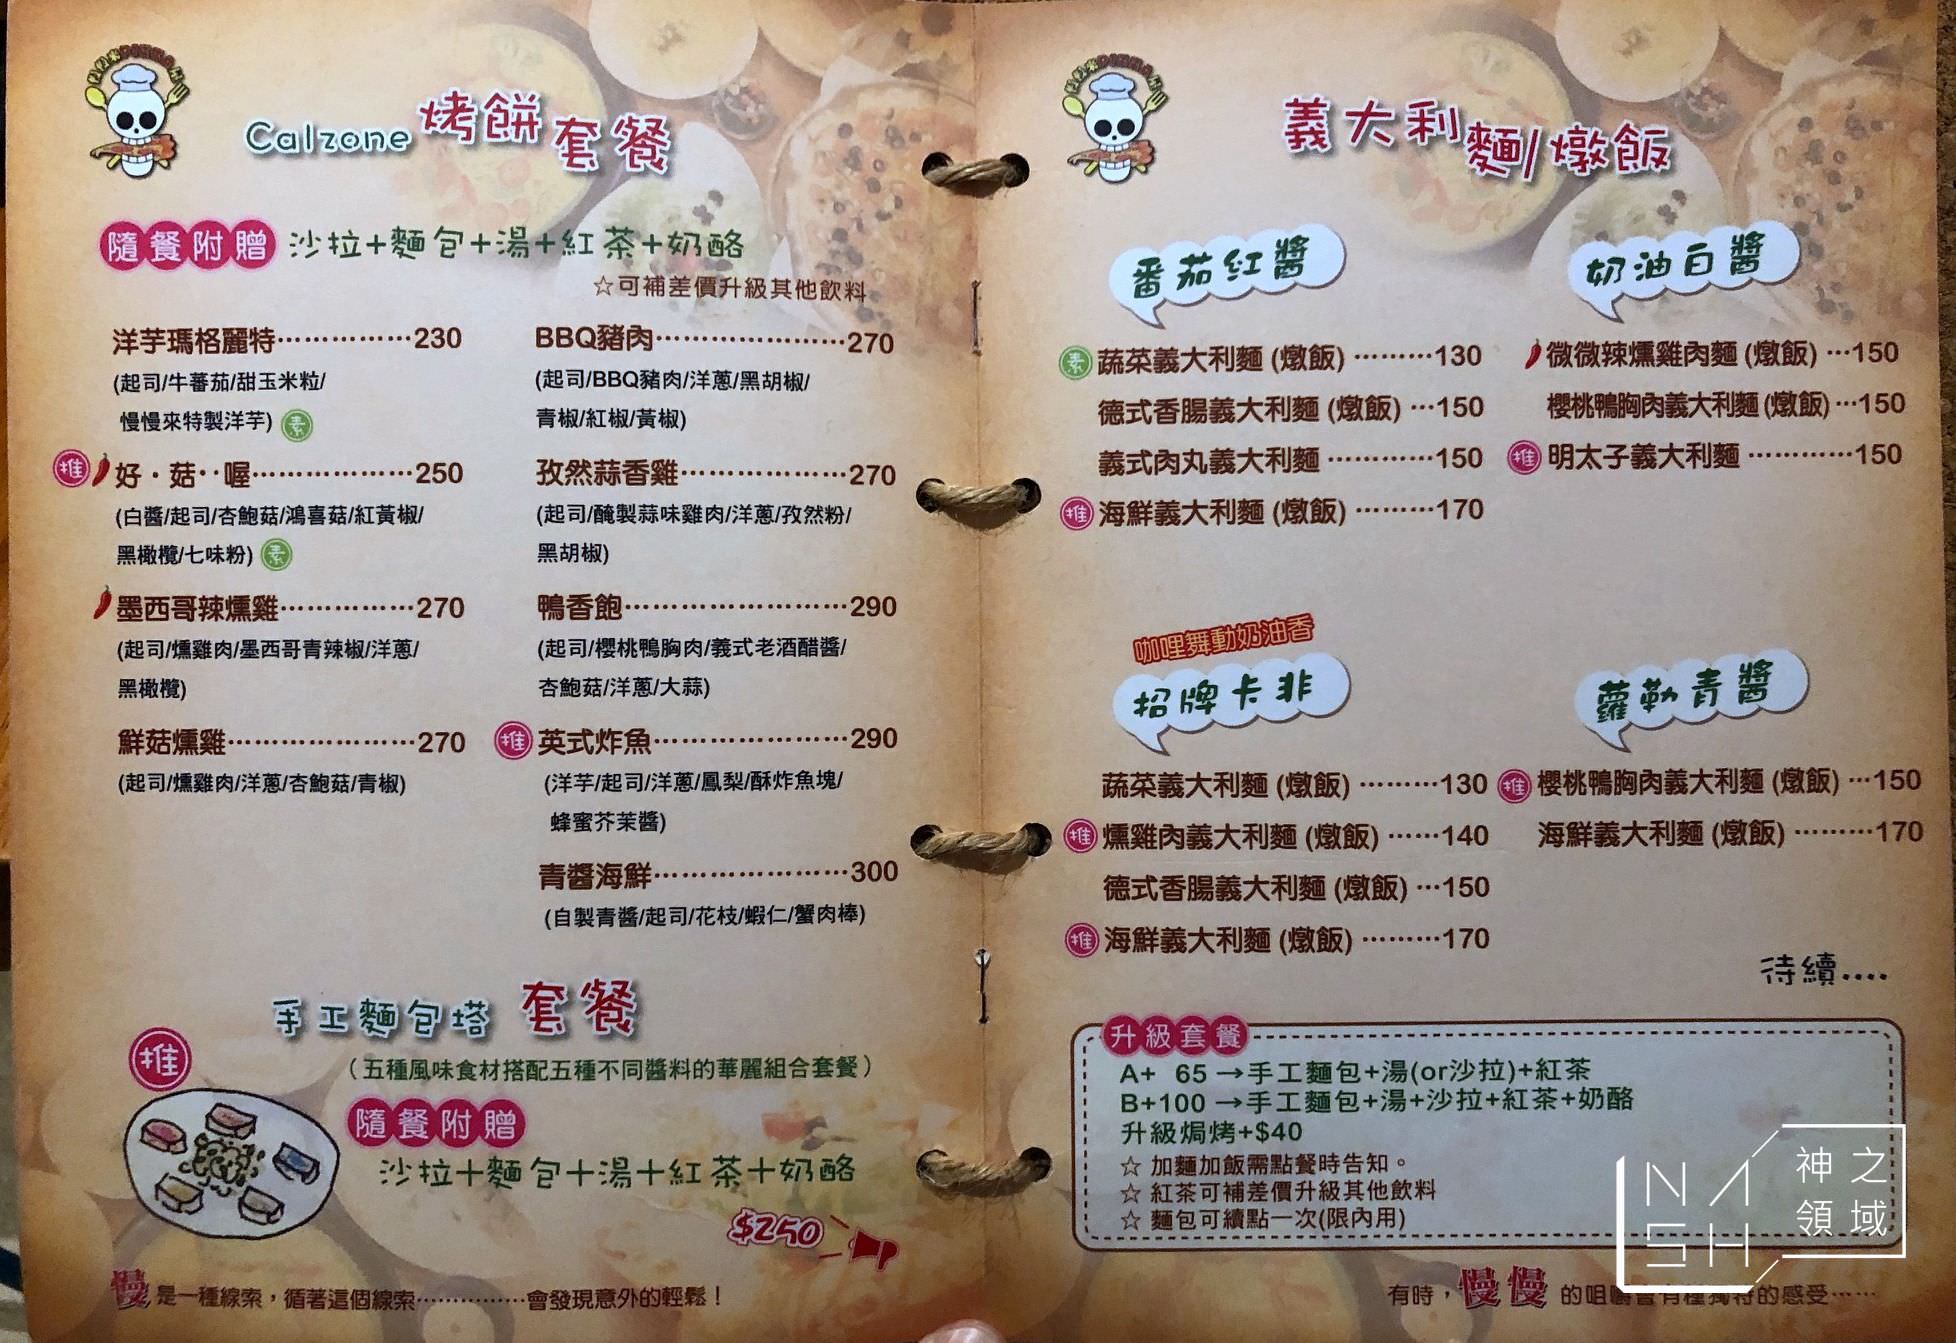 Calzone 烤餅套餐
隨餐附贈 沙拉+麵包+湯+紅茶+奶酪
☆可補差價升級其他飲料
洋芋瑪格麗特……………230
(起司/牛蕃茄/甜玉米粒/
慢慢來特製洋芋) 素
推 好・菇‥喔………………250
(白醬/起司/杏鮑菇/鴻喜菇/紅黃椒/
黑橄欖/七味粉) 素
墨西哥辣燻雞……………270
(起司/燻雞肉/墨西哥青辣椒/洋蔥/
黑橄欖)
鮮菇燻雞…………………270
(起司/燻雞肉/洋蔥/杏鮑菇/青椒)
BBQ豬肉…………………270
(起司/BBQ豬肉/洋蔥/黑胡椒/
青椒/紅椒/黃椒)
孜然蒜香雞………………270
(起司/醃製蒜味雞肉/洋蔥/孜然粉/
黑胡椒)
鴨香飽……………………290
(起司/櫻桃鴨胸肉/義式老酒醋醬/
杏鮑菇/洋蔥/大蒜)
推 英式炸魚…………………290
(洋芋/起司/洋蔥/鳳梨/酥炸魚塊/
蜂蜜芥茉醬)
青醬海鮮…………………300
(自製青醬/起司/花枝/蝦仁/蟹肉棒)
手工麵包塔 套餐
推
(五種風味食材搭配五種不同醬料的華麗組合套餐)
隨餐附贈
沙拉+麵包+湯+紅茶+奶酪
$250
慢是一種線索，循著這個線索……………會發現意外的輕鬆！
義大利麵/燉飯
番茄紅醬
素 蔬菜義大利麵 (燉飯) ………130
德式香腸義大利麵 (燉飯) …150
義式肉丸義大利麵 …………150
推 海鮮義大利麵 (燉飯) ………170
奶油白醬
微微辣燻雞肉麵 (燉飯) …150
櫻桃鴨胸肉義大利麵 (燉飯) …150
推 明太子義大利麵 …………150
咖哩舞動奶油香
招牌卡非
蔬菜義大利麵 (燉飯) ………130
推 燻雞肉義大利麵 (燉飯) ……140
德式香腸義大利麵 (燉飯) …150
推 海鮮義大利麵 (燉飯) ………170
蘿勒青醬
推 櫻桃鴨胸肉義大利麵 (燉飯) …150
海鮮義大利麵 (燉飯) ………170
待續....
升級套餐
A+ 65 →手工麵包+湯(or沙拉)+紅茶
B+100 →手工麵包+湯+沙拉+紅茶+奶酪
升級焗烤+$40
☆ 加麵加飯需點餐時告知。
☆ 紅茶可補差價升級其他飲料
☆ 麵包可續點一次(限內用)
有時，慢慢的咀嚼會有種獨特的感受……
NASH 神之領域